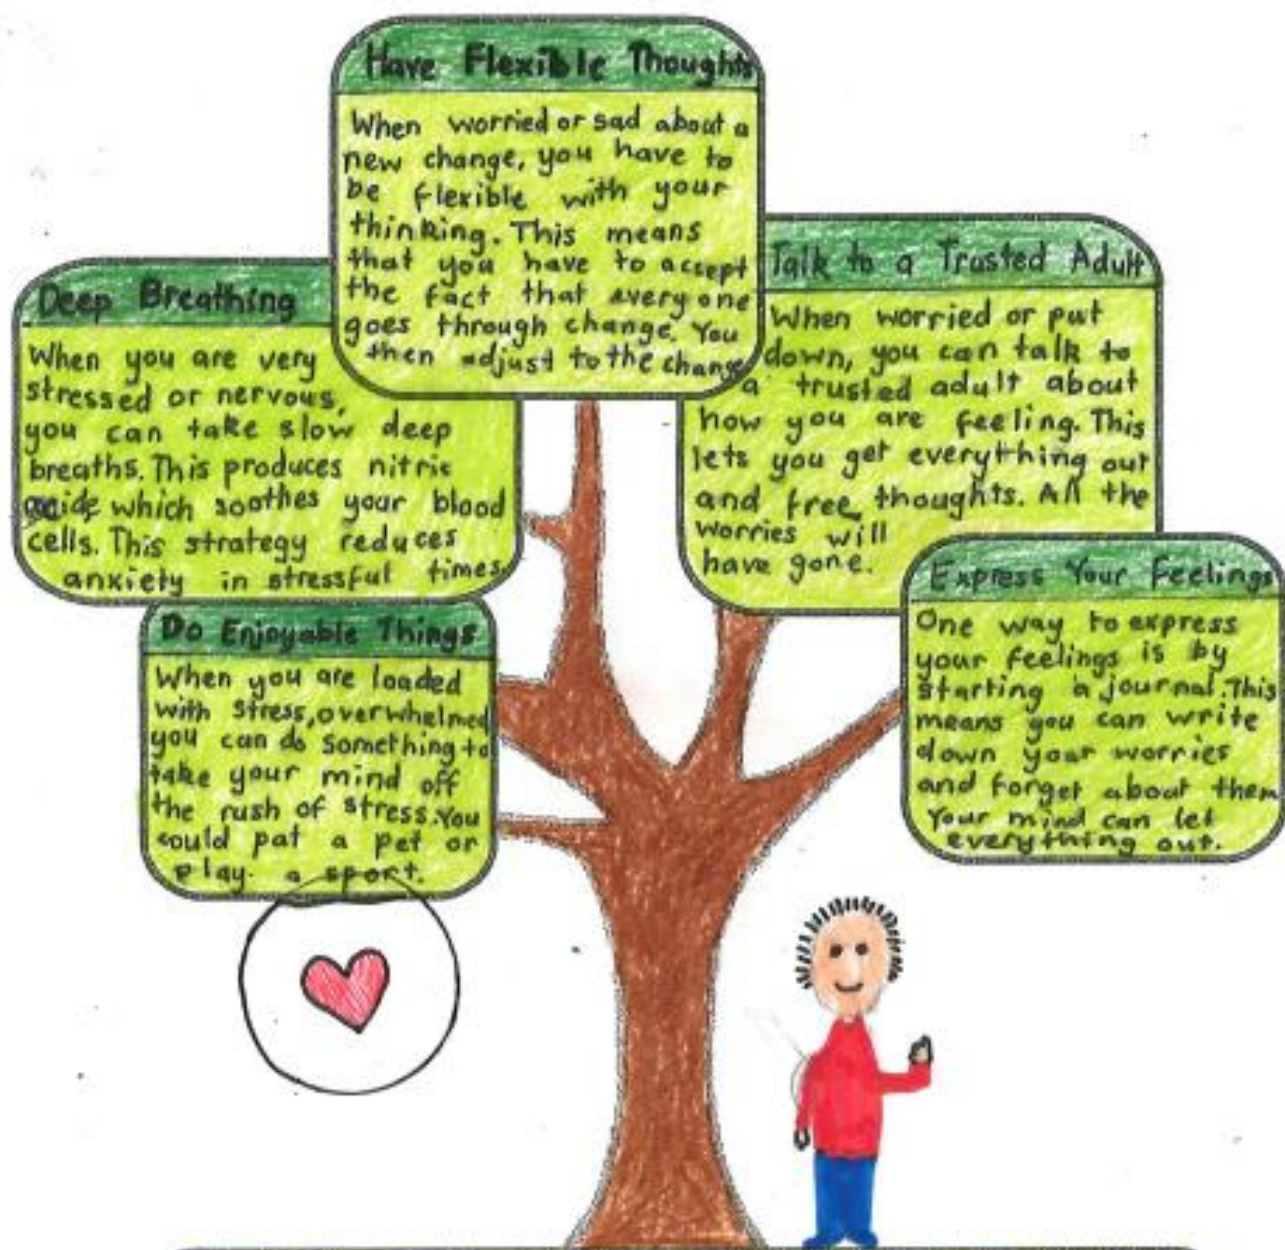 Have Flexible Thoughts
When worried or sad about a
new change, you have to
be flexible with your
thinking. This means
that you have to accept
the fact that everyone
goes through change. You
then adjust to the change
Deep Breathing
When you are very
stressed or nervous,
you can take slow deep
breaths. This produces nitric
which soothes your blood
cells. This strategy reduces
anxiety in stressful times.
Talk to a Trusted Adult
When worried or put
down, you can talk to
a trusted adult about
how you are feeling. This
lets you get everything out
and free thoughts. All the
worries will
have gone.
Do Enjoyable Things
When you are loaded
with stress, overwhelmed
you can do something to
take your mind off
the rush of stress. You
could pat a pet or
play a sport.
Express Your Feelings
One way to express
your feelings is by
starting a journal. This
means you can write
down your worries
and forget about them
Your mind can let
everything out.